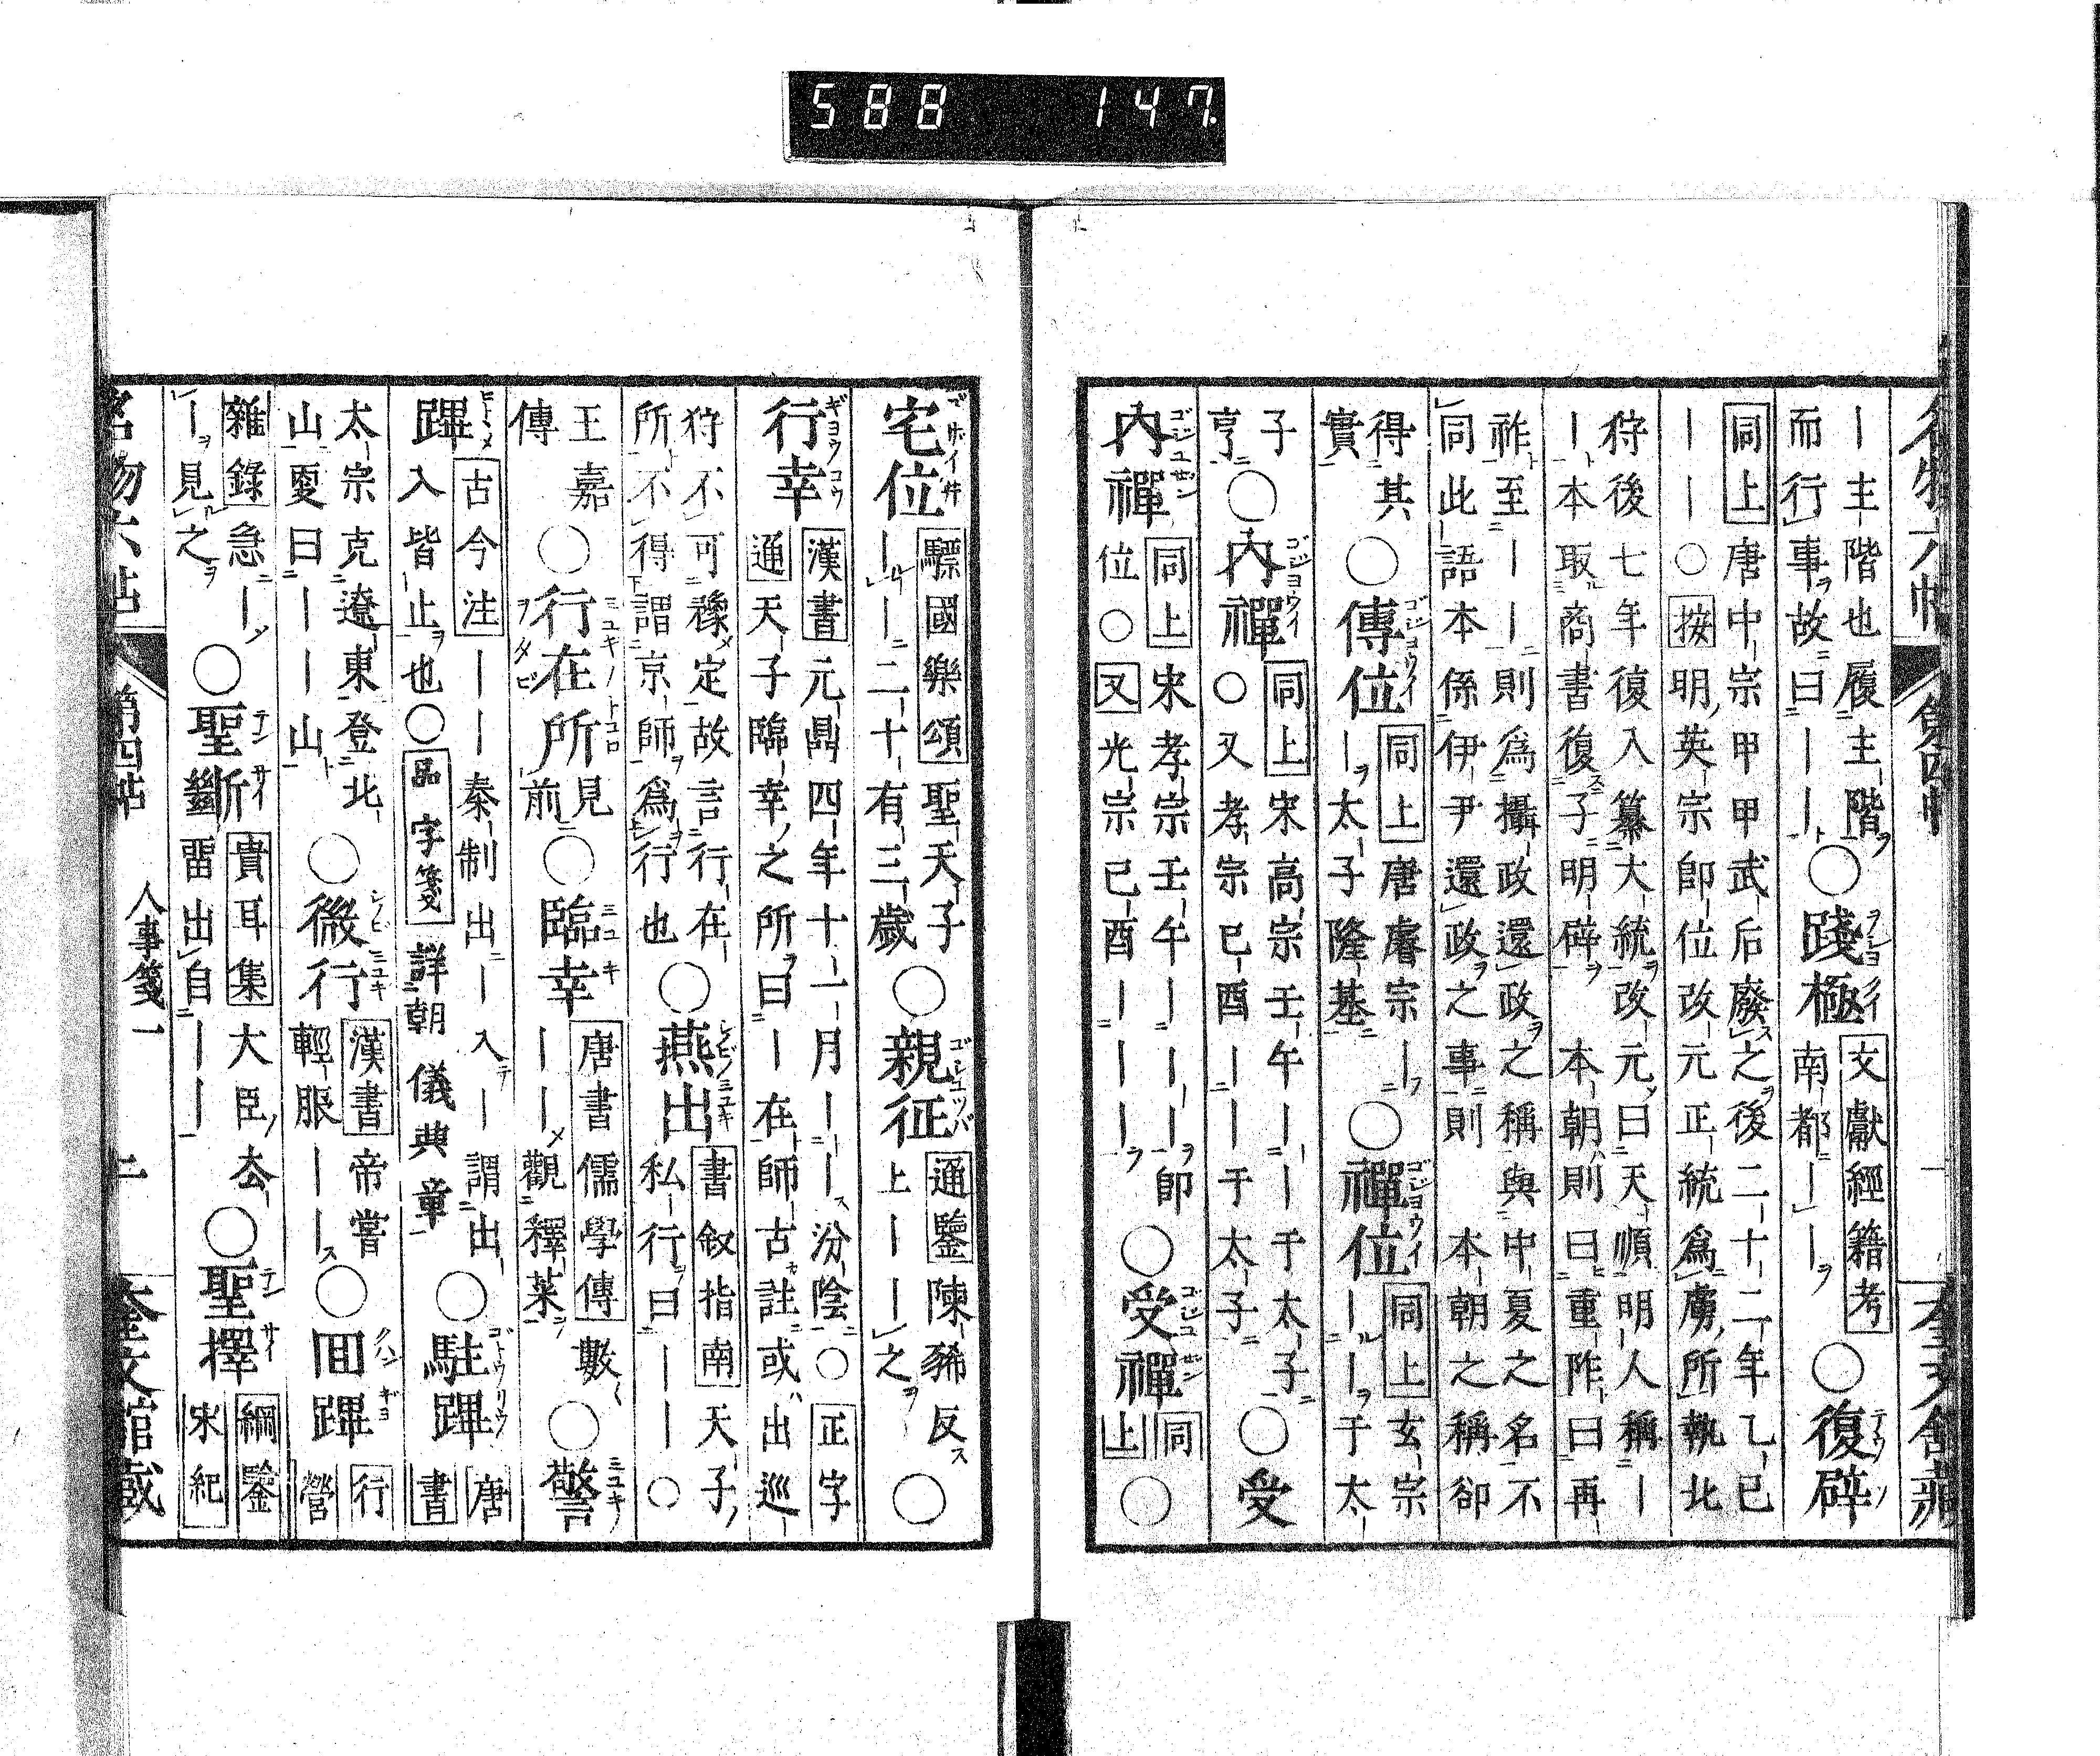 588 147.
名物六帖 第四帖 一 奎文館藏
｜主階也履主階
而行事故曰｜｜
○踐極
文獻經籍考
南都｜｜
○復辟
同上唐中宗甲甲武后廢之後二十二年乙巳
｜｜○按明英宗即位改元正統爲虜所執北
狩後七年復入纂大統改元曰天順明人稱｜
｜本取商書復子明辟 本朝則曰重阼曰再
祚至｜｜則爲攝政還政之稱與中夏之名不
同此語本係伊尹還政之事則 本朝之稱卻
得其
實
○傳位
同上唐睿宗｜
｜太子隆基
○禪位
同上玄宗
｜｜于太
子
亨
○內禪
同上宋高宗壬午｜｜于太子
○又孝宗已酉｜｜于太子
○受
內禪
同上宋孝宗壬午｜｜｜即
位○又光宗已酉｜｜｜
○受禪
同
上
○
宅位
驃國樂頌聖天子
｜｜二十有三歲
○親征
通鑒陳豨反
上｜｜之
○
行幸
漢書元鼎四年十一月｜｜汾陰○正字
通天子臨幸之所曰｜在師古註或出巡
狩不可豫定故言行在
所不得謂京師爲行也
○燕出
書敘指南天子
私行曰｜｜○
王嘉
傳
○行在所
見
前
○臨幸
唐書儒學傳數
｜｜觀釋菜
○警
蹕
古今注｜｜秦制出｜入｜謂出
入皆止也○品字箋詳朝儀典章
○駐蹕
唐
書
太宗克遼東登北
山更曰｜｜山
○微行
漢書帝嘗
輕服｜｜
○回蹕
行
營
雜錄急｜
｜見之
○聖斷
貴耳集大臣去
留出自｜｜
○聖擇
綱鑒
宋紀
名物六帖 第四帖 人事箋一 二 奎文館藏